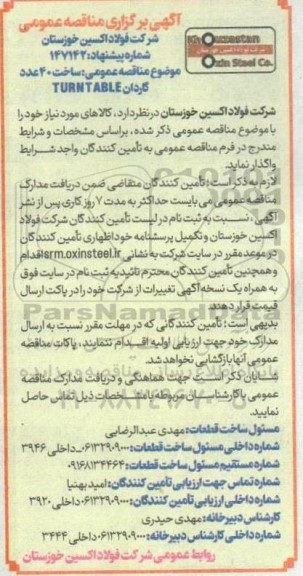 آگهی برگزاری مناقصه عمومی
شرکت فولاد اکسین خوزستان
Khouzestan
شرکت فولاد اکسین خوزستان
Oxin Steel Co.
شماره پیشنهاد: ۱۴۷۱۴۲
موضوع مناقصه عمومی: ساخت ۲۰ عدد
کاردان TURN TABLE
شرکت فولاد اکسین خوزستان در نظر دارد، کالاهای مورد نیاز خود را
با موضوع مناقصه عمومی ذکر شده، براساس مشخصات و شرایط
مندرج در فرم مناقصه عمومی به تأمین کنندگان واجد شرایط
واگذار نماید.
لازم به ذکر است؛ تأمین کنندگان متقاضی ضمن دریافت مدارک
مناقصه عمومی می بایست حداکثر به مدت ۷ روز کاری پس از نشر
آگهی، نسبت به ثبت نام در لیست تأمین کنندگان شرکت فولاد
اکسین خوزستان و تکمیل پرسشنامه خوداظهاری تأمین کنندگان
در موعد مقرر در سایت شرکت به نشانی srm.oxinsteel.ir اقدام
و همچنین تأمین کنندگان محترم تائیدیه ثبت نام در سایت فوق
به همراه یک نسخه آگهی تغییرات از شرکت خود را در پاکت ارسال
قیمت قرار دهند.
بدیهی است؛ تأمین کنندگانی که در مهلت مقرر نسبت به ارسال
مدارک خود جهت ارزیابی اولیه اقدام ننمایند، پاکات مناقصه
عمومی آنها بازگشایی نخواهد شد.
شایان ذکر است جهت هماهنگی و دریافت مدارک مناقصه
عمومی با کارشناسان مربوطه با مشخصات ذیل تماس حاصل
نمایید.
مسئول ساخت قطعات: مهدی عبدالرضایی
شماره داخلی مسئول ساخت قطعات: ۰۶۱۳۲۹۰۹۰۰۰ـ داخلی ۳۹۴۶
شماره مستقیم مسئول ساخت قطعات: ۰۹۱۶۸۱۳۴۴۶۴
شماره تماس جهت ارزیابی تأمین کنندگان: امید بهنیا
شماره داخلی ارزیابی تأمین کنندگان: ۰۶۱۳۲۹۰۹۰۰۰ داخلی ۳۹۲۰
کارشناس دبیرخانه: مهدی حیدری
شماره داخلی کارشناس دبیرخانه: ۰۶۱۳۲۹۰۹۰۰۰ داخلی ۳۴۴۴
روابط عمومی شرکت فولاد اکسین خوزستان
ParsNamadData